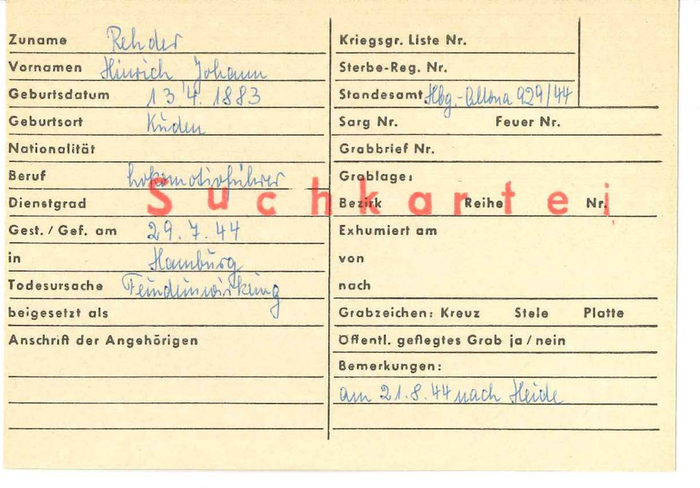 Zuname Rehder
Vornamen Hinrich Johann
Geburtsdatum 13.4.1883
Geburtsort Kuden
Nationalität
Beruf Lokomotivführer
Dienstgrad
Gest. / Gef. am 29.7.44
in Hamburg
Todesursache Feindeinwirkung
beigesetzt als
Anschrift der Angehörigen
Suchkartei
Kriegsgr. Liste Nr.
Sterbe-Reg. Nr.
Standesamt Hbg.-Altona 929/44
Sarg Nr. Feuer Nr.
Grabbrief Nr.
Grablage:
Bezirk Reihe Nr.
Exhumiert am
von
nach
Grabzeichen: Kreuz Stele Platte
Öffentl. gepflegtes Grab ja / nein
Bemerkungen:
am 21.8.44 nach Heide